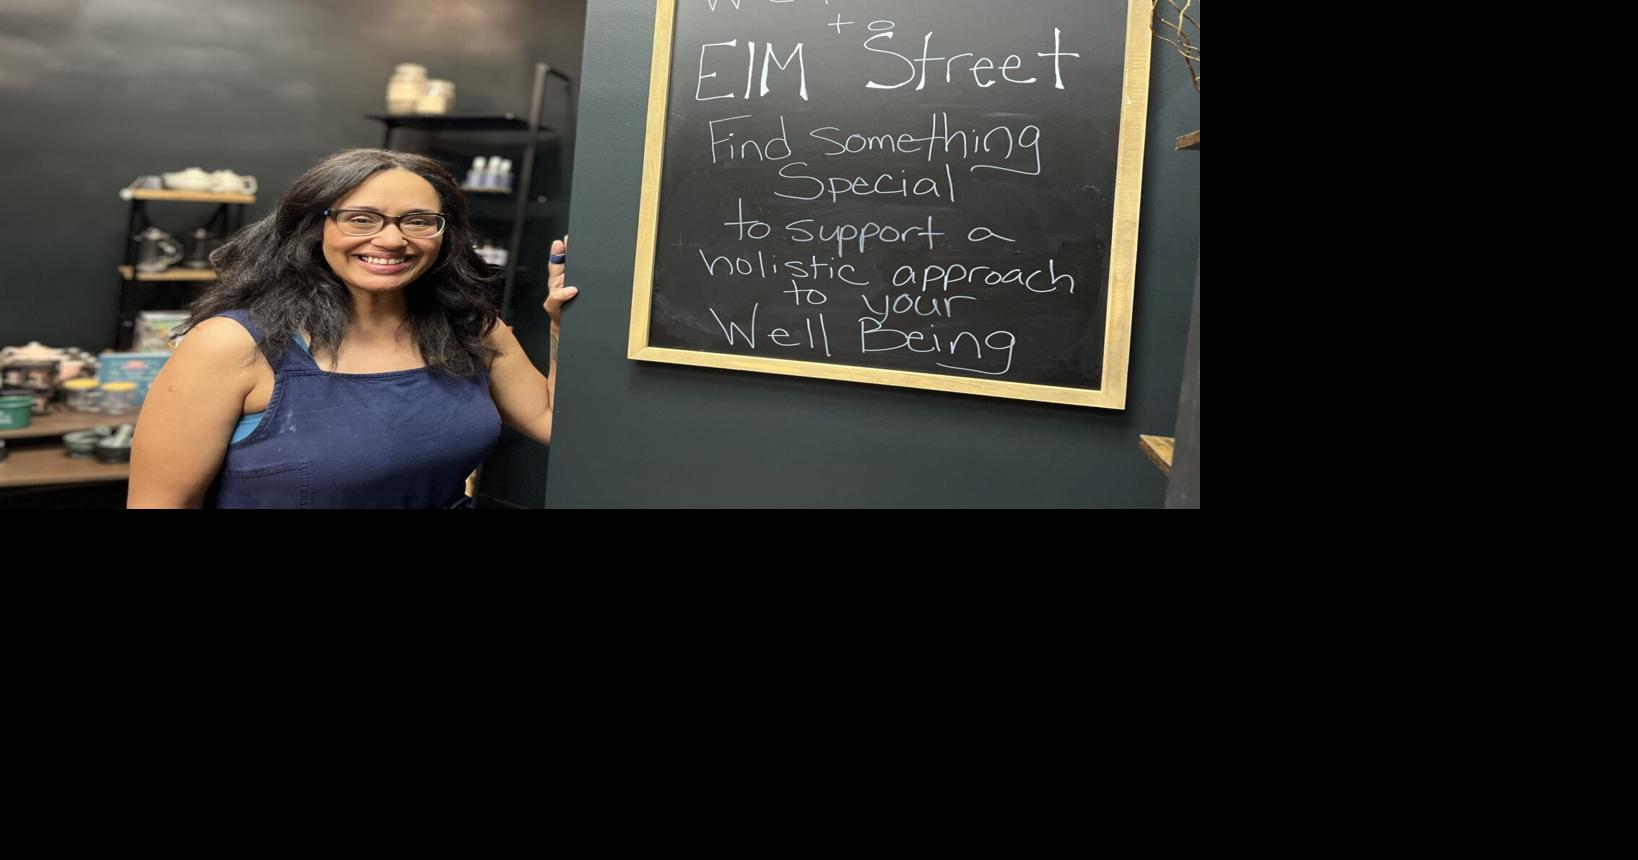 to
ElM Street
Find something
Special
to support a
holistic approach
to your
Well Being